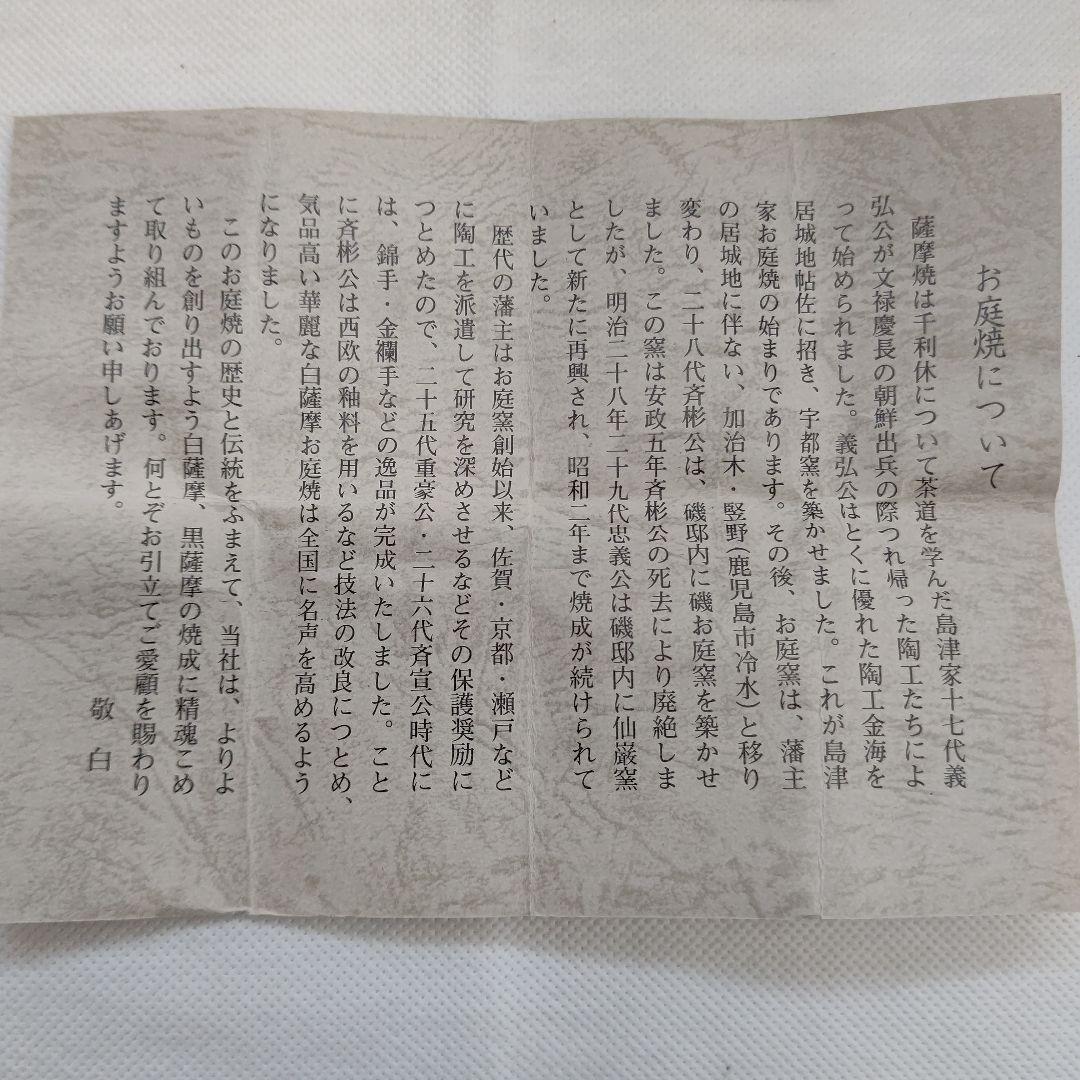 お庭焼について
薩摩焼は千利休について茶道を学んだ島津家十七代義
弘公が文禄慶長の朝鮮出兵の際つれ帰った陶工たちによ
って始められました。義弘公はとくに優れた陶工金海を
居城地帖佐に招き、宇都窯を築かせました。これが島津
家お庭焼の始まりであります。その後、お庭窯は、藩主
の居城地に伴ない、加治木・竪野(鹿児島市冷水)と移り
変わり、二十八代斉彬公は、磯邸内に磯お庭窯を築かせ
ました。この窯は安政五年斉彬公の死去により廃絶しま
したが、明治二十八年二十九代忠義公は磯邸内に仙巌窯
として新たに再興され、昭和二年まで焼成が続けられて
いました。
歴代の藩主はお庭窯創始以来、佐賀・京都・瀬戸など
に陶工を派遣して研究を深めさせるなどその保護奨励に
つとめたので、二十五代重豪公・二十六代斉宣公時代に
は、錦手・金襴手などの逸品が完成いたしました。こと
に斉彬公は西欧の釉料を用いるなど技法の改良につとめ、
気品高い華麗な白薩摩お庭焼は全国に名声を高めるよう
になりました。
このお庭焼の歴史と伝統をふまえて、当社は、よりよ
いものを創り出すよう白薩摩、黒薩摩の焼成に精魂こめ
て取り組んでおります。何とぞお引立てご愛顧を賜わり
ますようお願い申しあげます。
敬白